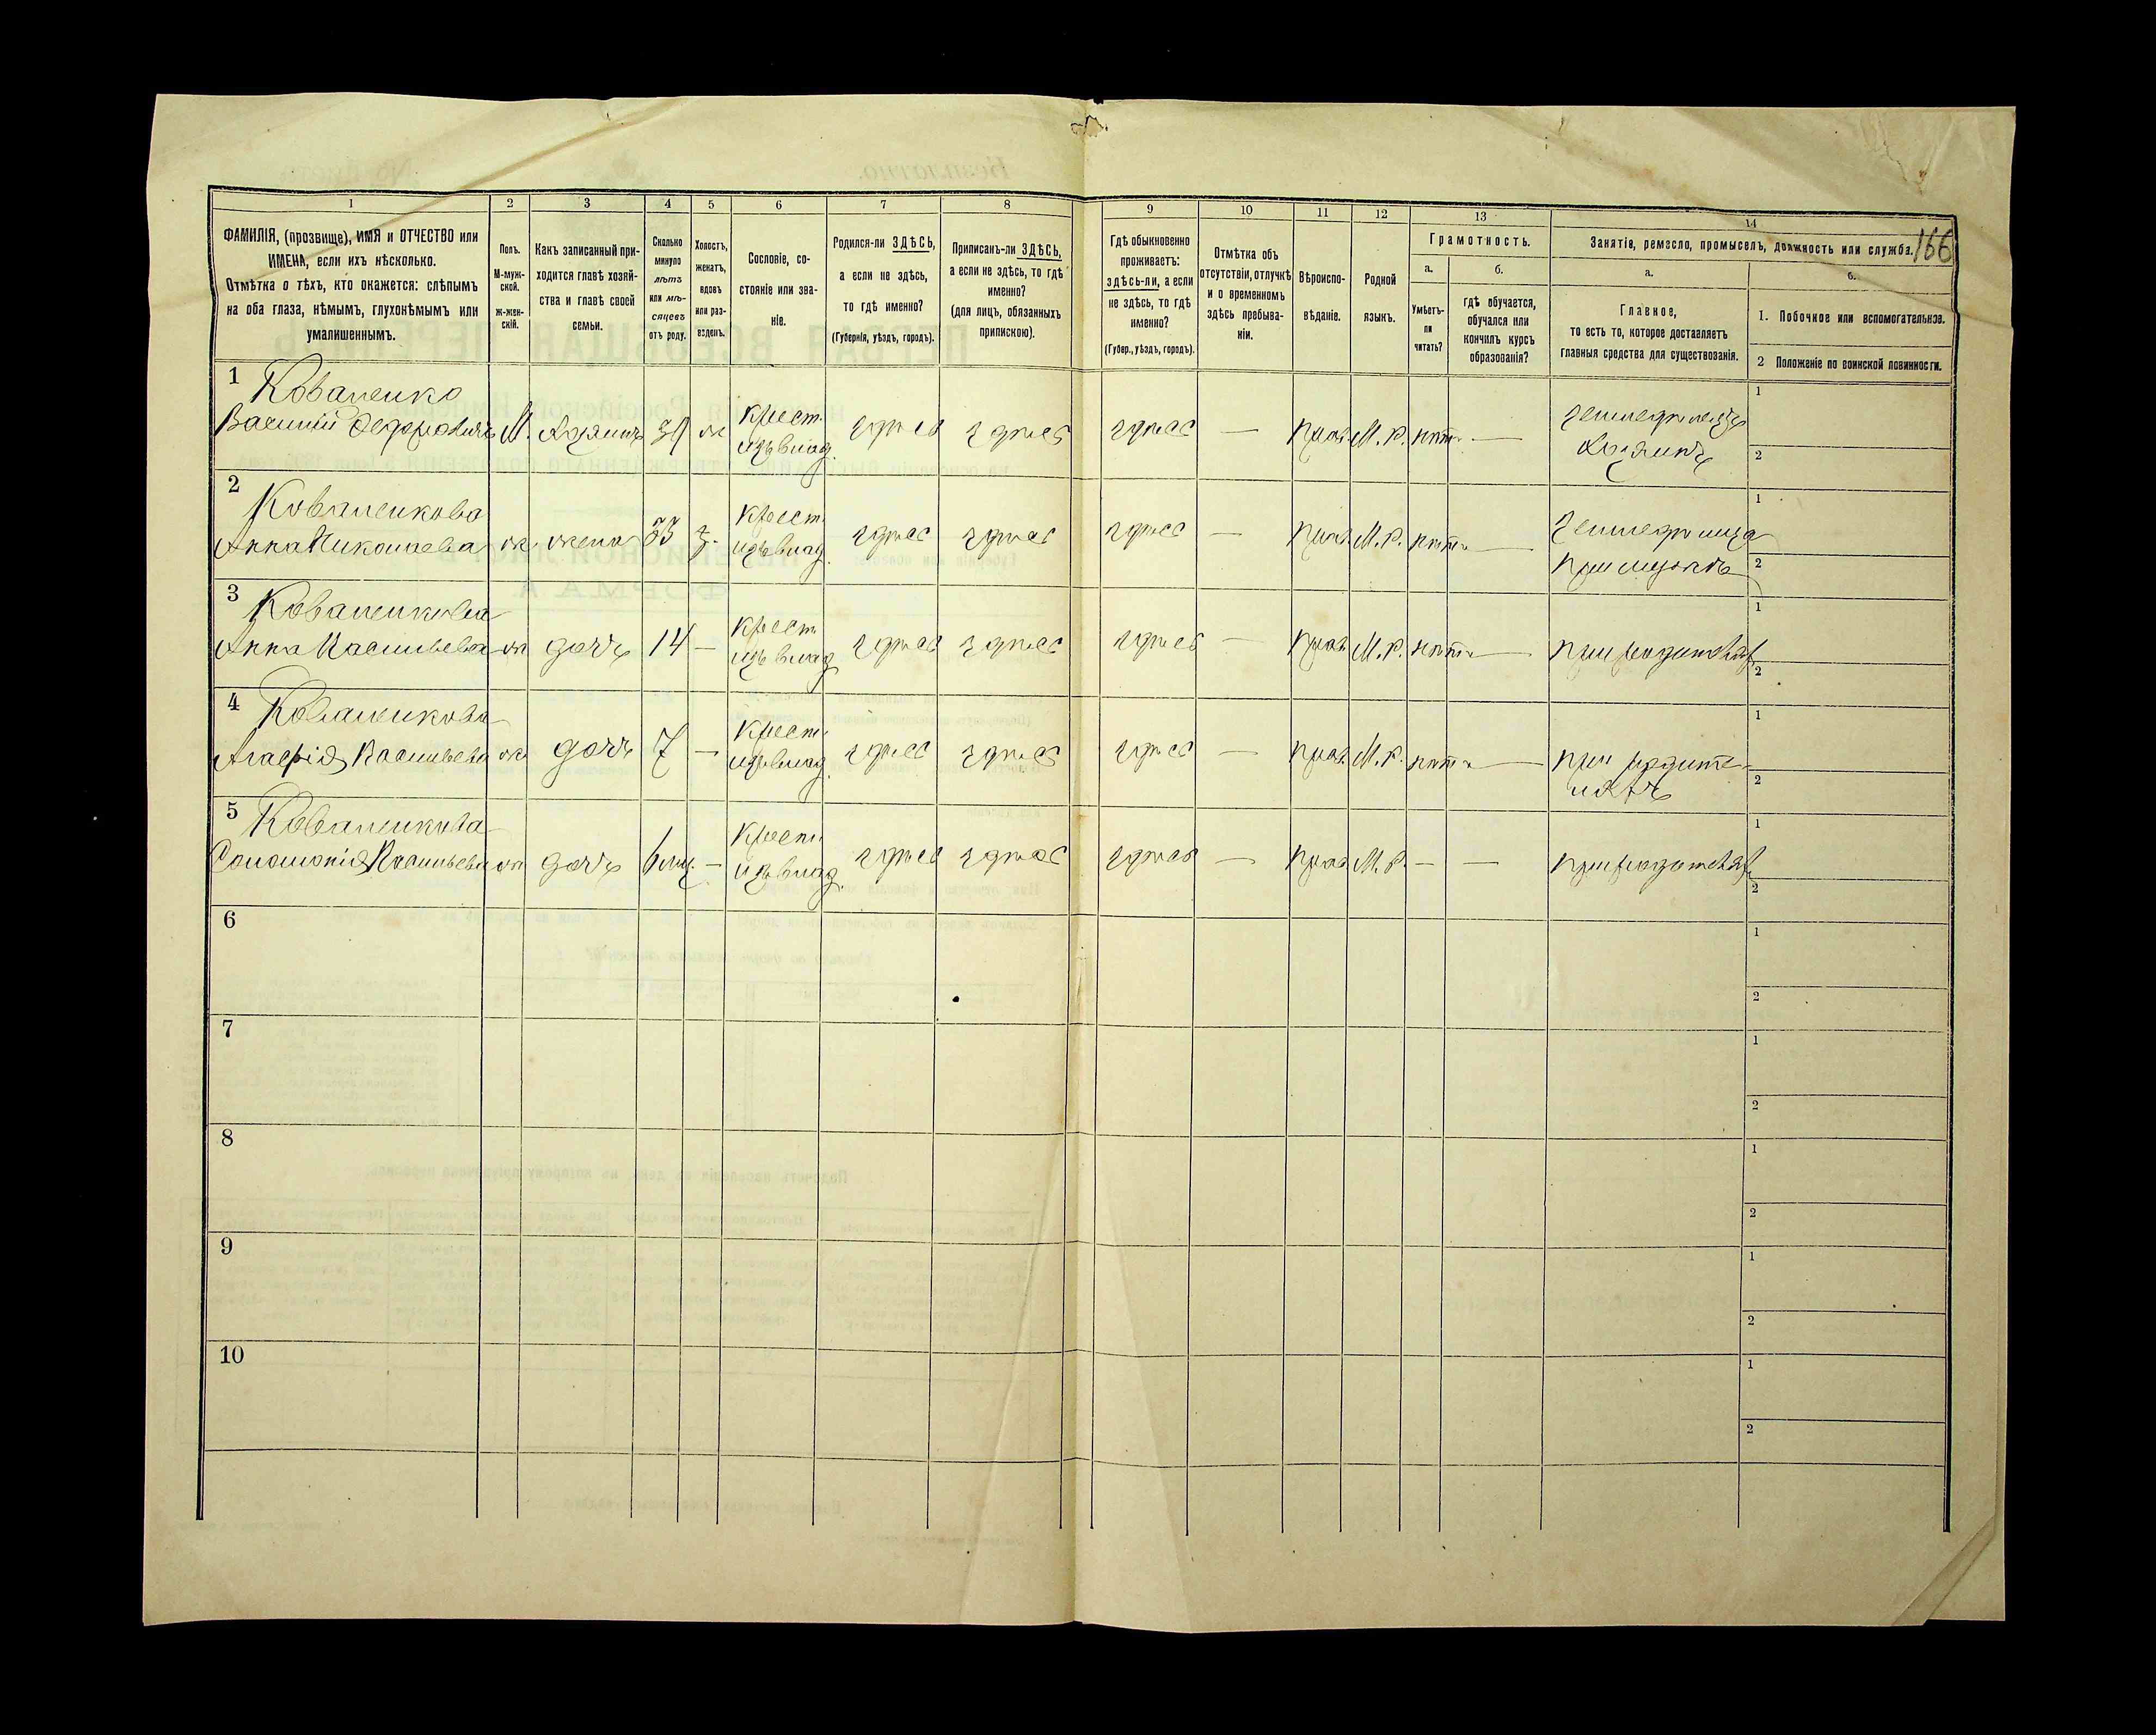 166
1 2 3 4 5 6 7 8 9 10 11 12 13 14
ФАМИЛІЯ, (прозвище), ИМЯ и ОТЧЕСТВО или
ИМЕНА, если ихъ нѣсколько.
Отмѣтка о тѣхъ, кто окажется: слѣпымъ
на оба глаза, нѣмымъ, глухонѣмымъ или
умалишеннымъ.
Полъ.
М-муж-
ской.
ж-жен-
скій.
Какъ записанный при-
ходится главѣ хозяй-
ства и главѣ своей
семьи.
Сколько
минуло
лѣтъ
или мѣ-
сяцевъ
отъ роду.
Холостъ,
женатъ,
вдовъ
или раз-
веденъ.
Сословіе, со-
стояніе или зва-
ніе.
Родился-ли ЗДѢСЬ,
а если не здѣсь,
то гдѣ именно?
(Губернія, уѣздъ, городъ).
Приписанъ-ли ЗДѢСЬ,
а если не здѣсь, то гдѣ
именно?
(для лицъ, обязанныхъ
припискою).
Гдѣ обыкновенно
проживаетъ:
здѣсь-ли, а если
не здѣсь, то гдѣ
именно?
(Губер., уѣздъ, городъ).
Отмѣтка объ
отсутствіи, отлучкѣ
и о временномъ
здѣсь пребыва-
ніи.
Вѣроиспо-
вѣданіе.
Родной
языкъ.
Грамотность.
а.
Умѣетъ-
ли
читать?
б.
гдѣ обучается,
обучался или
кончилъ курсъ
образованія?
Занятіе, ремесло, промыселъ, должность или служба.
а.
Главное,
то есть то, которое доставляетъ
главныя средства для существованія.
б.
1. Побочное или вспомогательное.
2 Положеніе по воинской повинности.
1 Коваленко Крест. земледѣлецъ 1
Василій М. Хозяинъ ж изъ влад. здѣсь здѣсь здѣсь — Прав. М. Р. нѣтъ — Хозяинъ 2
2 Коваленкова Крест. Земледѣлица 1
Анна Николаева ж. жена 33 з. изъ влад. здѣсь здѣсь здѣсь — Прав. М. Р. нѣтъ — При мужѣ 2
3 Коваленкова Крест. 1
Анна Васильева ж дочь 14 — изъ влад. здѣсь здѣсь здѣсь — Прав. М. Р. нѣтъ — При родителяхъ 2
4 Коваленкова Крест. При родите- 1
Агафія Васильева ж дочь 7 — изъ влад. здѣсь здѣсь здѣсь — Прав. М. Р. нѣтъ — ляхъ 2
5 Коваленкова Крест. 1
Соломонія Васильева ж дочь 6 мц. — изъ влад. здѣсь здѣсь здѣсь — Прав. М. Р. — — При родителяхъ 2
6 1
2
7 1
2
8 1
2
9 1
2
10 1
2